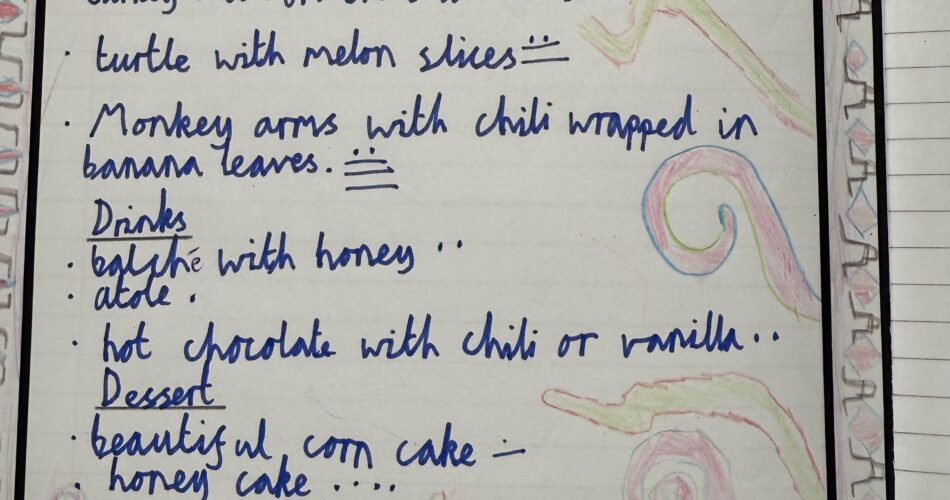 · turtle with melon slices
· Monkey arms with chili wrapped in
banana leaves.
Drinks
· balché with honey ··
· atole ·
· hot chocolate with chili or vanilla ··
Dessert
· beautiful corn cake —
· honey cake ····